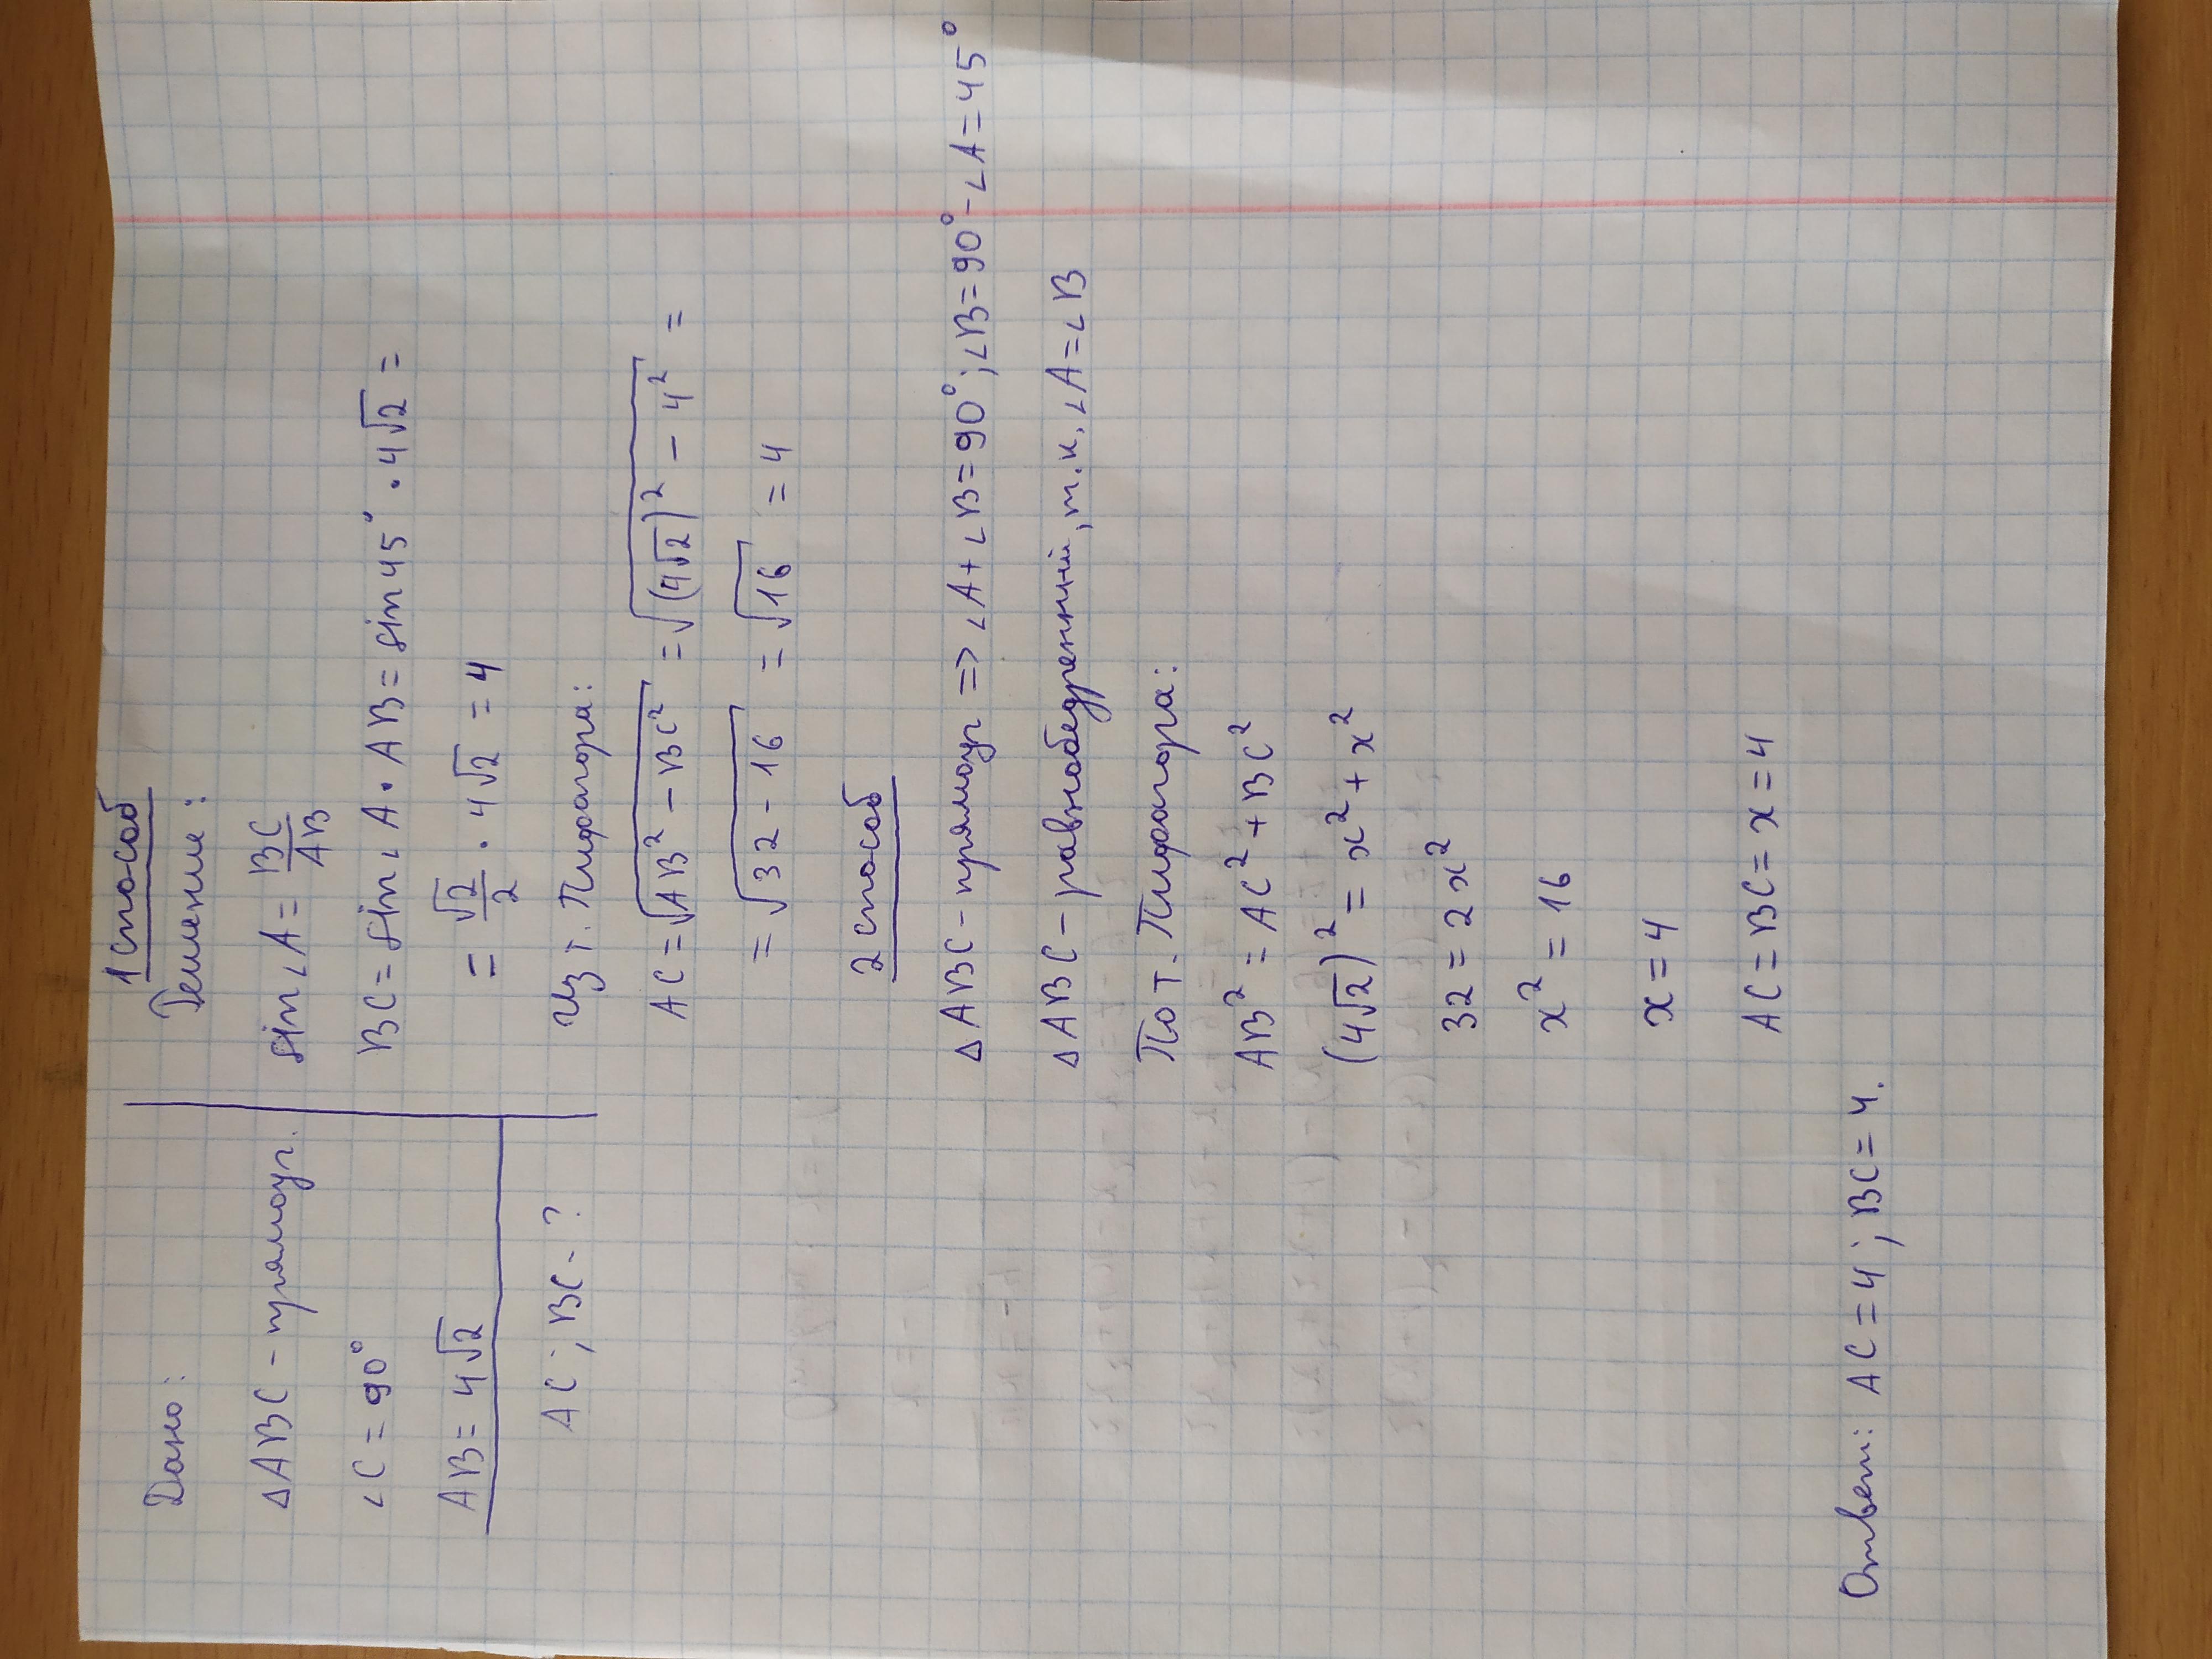 Дано:
∆ABC - прямоуг.
∠C = 90°
AB = 4√2
AC; BC - ?
1 способ
Решение:
sin∠A = BC/AB
BC = sin∠A · AB = sin 45° · 4√2 =
= √2/2 · 4√2 = 4
Из т. Пифагора:
AC = √(AB² - BC²) = √((4√2)² - 4²) =
= √(32 - 16) = √16 = 4
2 способ
∆ABC - прямоуг => ∠A + ∠B = 90°; ∠B = 90° - ∠A = 45°
∆ABC - равнобедренный, т.к. ∠A = ∠B
По т. Пифагора:
AB² = AC² + BC²
(4√2)² = x² + x²
32 = 2x²
x² = 16
x = 4
AC = BC = x = 4
Ответ: AC = 4; BC = 4.